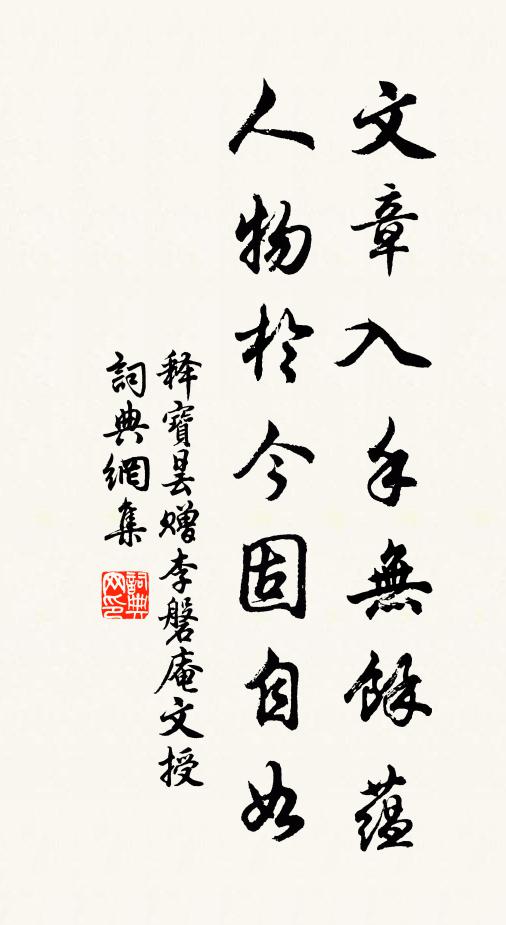 文章入手無餘蘊
人物於今固自如
释寶曇贈李磐庵文授
詞典網集
詞典网印